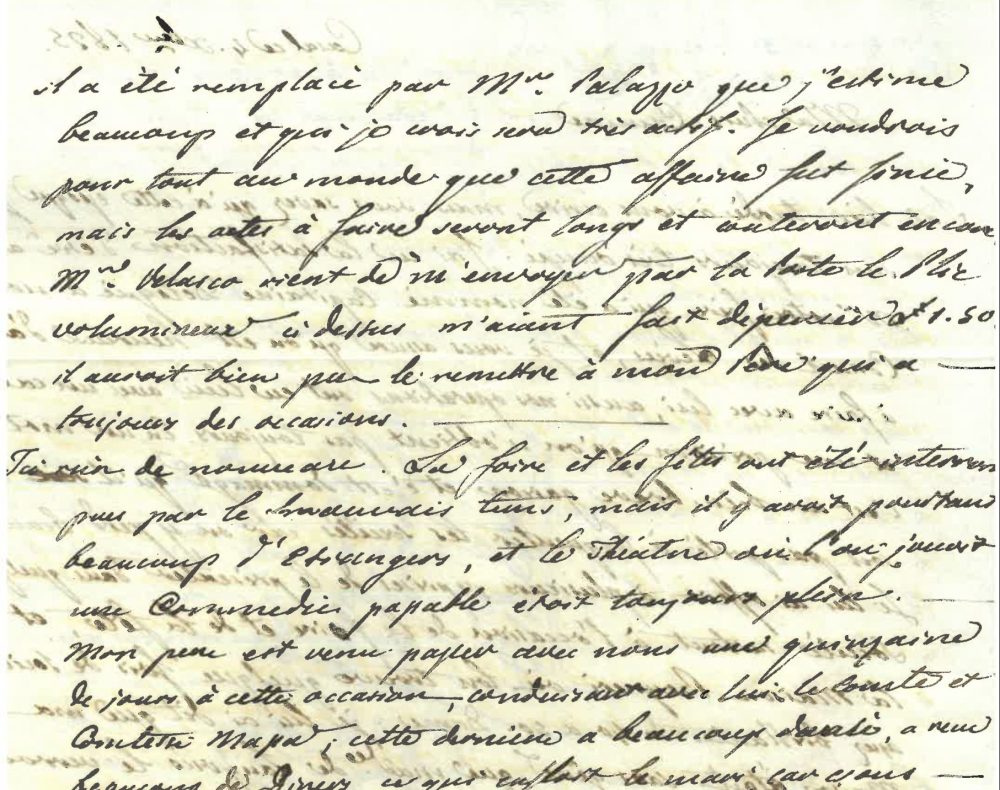 il a été remplacé par Mr. Palazzo que j'estime
beaucoup et qui je crois sera très actif. Je voudrois
pour tout au monde que cette affaire fut finie,
mais les actes à faire seront longs et couteront encore
Mr. Velasco vient de m'envoyer par la Poste le Plic
volumineux ci dessus m'aiant fait dépenser 1.50
il auroit bien pu le remettre à mon Père qui a
toujours des occasions.
Ici rien de nouveau. La foire et les fêtes ont été interrom
pues par le mauvais tems, mais il y avoit pourtant
beaucoup d'Etrangers, et le Théatre où l'on jouoit
une Commedie passable étoit toujours plein.
Mon pere est venu passer avec nous une quinzaine
de jours à cette occasion, conduisant avec lui le Comte et
Comtesse ; cette derniere a beaucoup, a
beaucoup de Diners ce qui le mari car